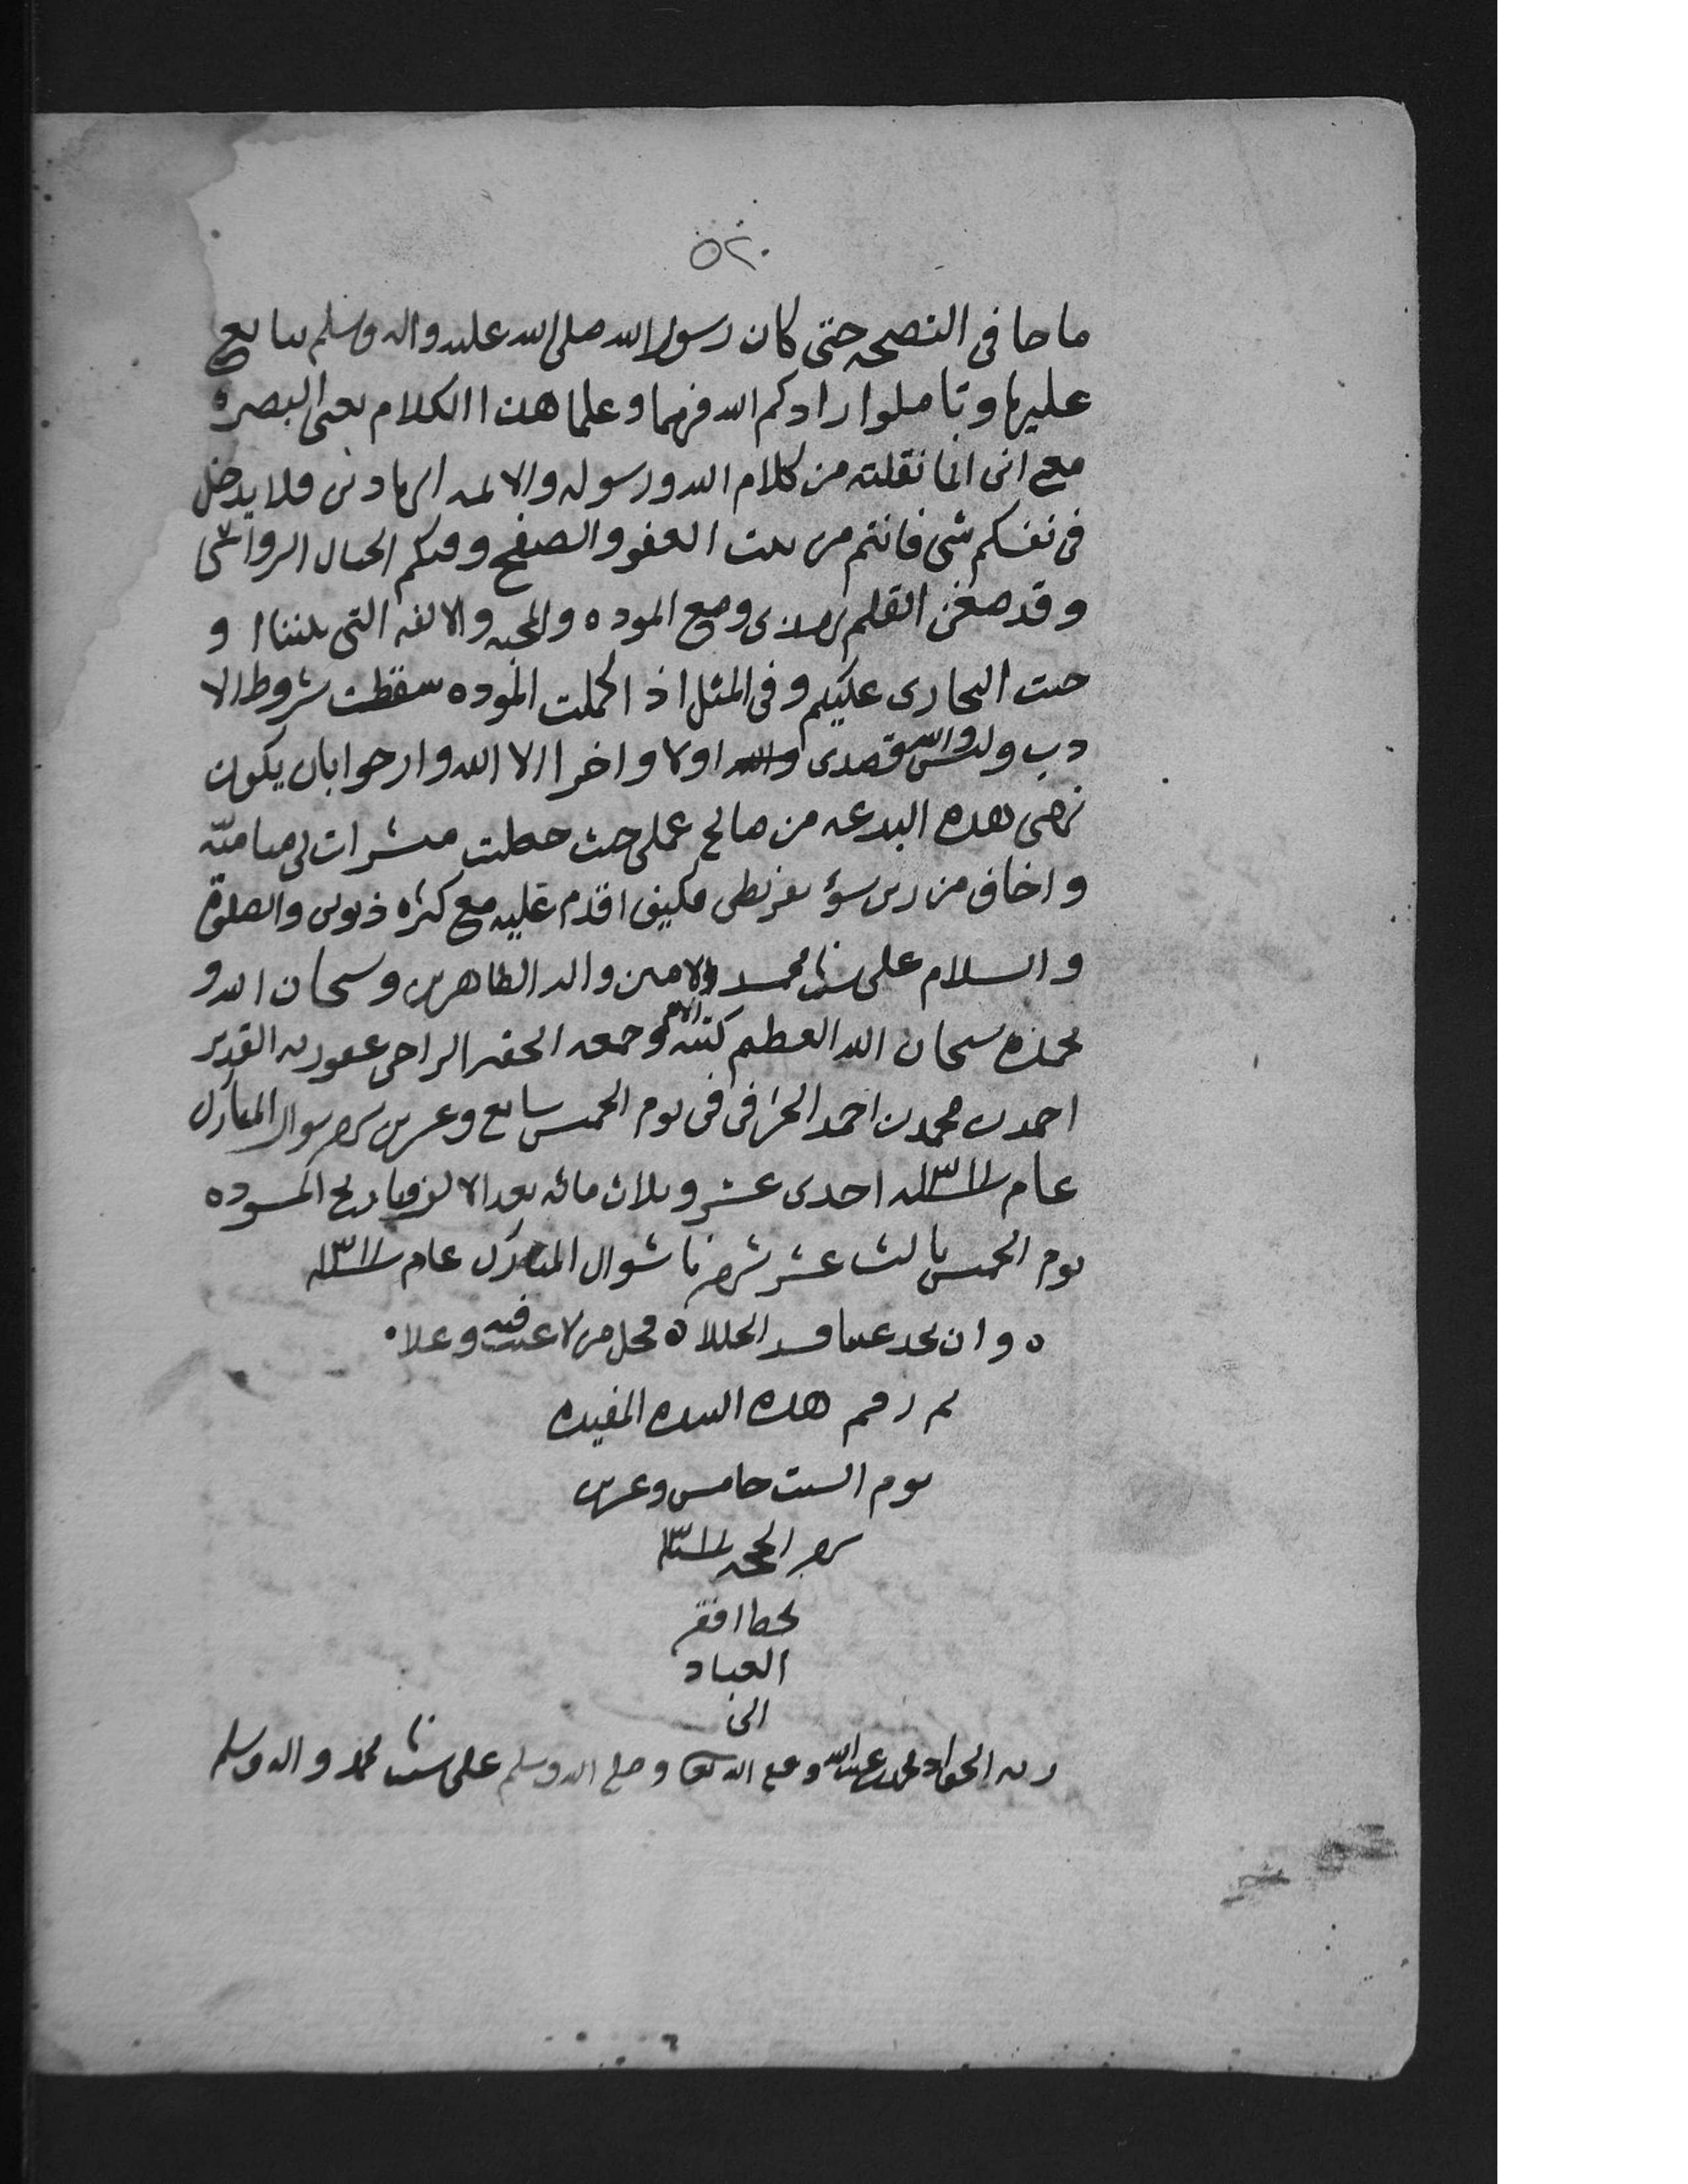 ٥٢٠
ما جا فى النصيحه حتى كان رسول الله صلى الله عليه واله وسلم يبايع
عليها وتاملوا زادكم الله فهما وعلما هذا الكلام بعين البصيره
مع انى انما نقلته من كلام الله ورسوله والائمه الهادين فلا يدخل
فى نفسكم شى فانتم من بيت العفو والصفح وفيكم الجبال الرواسى
وقد القلم ومع الموده والمحبه والالفه التى بيننا ا و
حيت التجارى عليكم وفى المثل اذا كملت الموده سقطت شروط الا
دب وليس والله قصدى والله اولا واخرا الا الله وارجوا بان يكون
نهى هذه البدعه من صالح عملى حيث حصلت مبشرات لى مناميّه
واخاف من ربى سؤ تفريطى فكيف اقدم عليه مع كثره ذنوبى والصلوة
والسلام على نبينا محمد الامين واله الطاهرين وسبحان الله و
بحمده سبحان الله العظيم كتبه وجمعه الحقير الراجى عفو ربه القدير
احمد بن محمد بن احمد الجرافى فى يوم الخميس سابع وعشرين شهر شوال المبارك
عام ١٣١١ احدى عشر وثلاث مائه بعد الالف وتاريخ المسوده
يوم الخميس ثالث عشر شهرنا شوال المبارك عام ١٣١١
ه وان تجد عيبا فسد الخللا ه فجل من لا عيب فيه وعلا
تم رقم هذه النبذه المفيده
يوم السبت خامس وعشرين
شهر الحجه ١٣١١
بخط افقر
العباد
الى
ربه الجواد محمد بن عبدالله وفقه الله وصلى الله وسلم على نبينا محمد واله وسلم